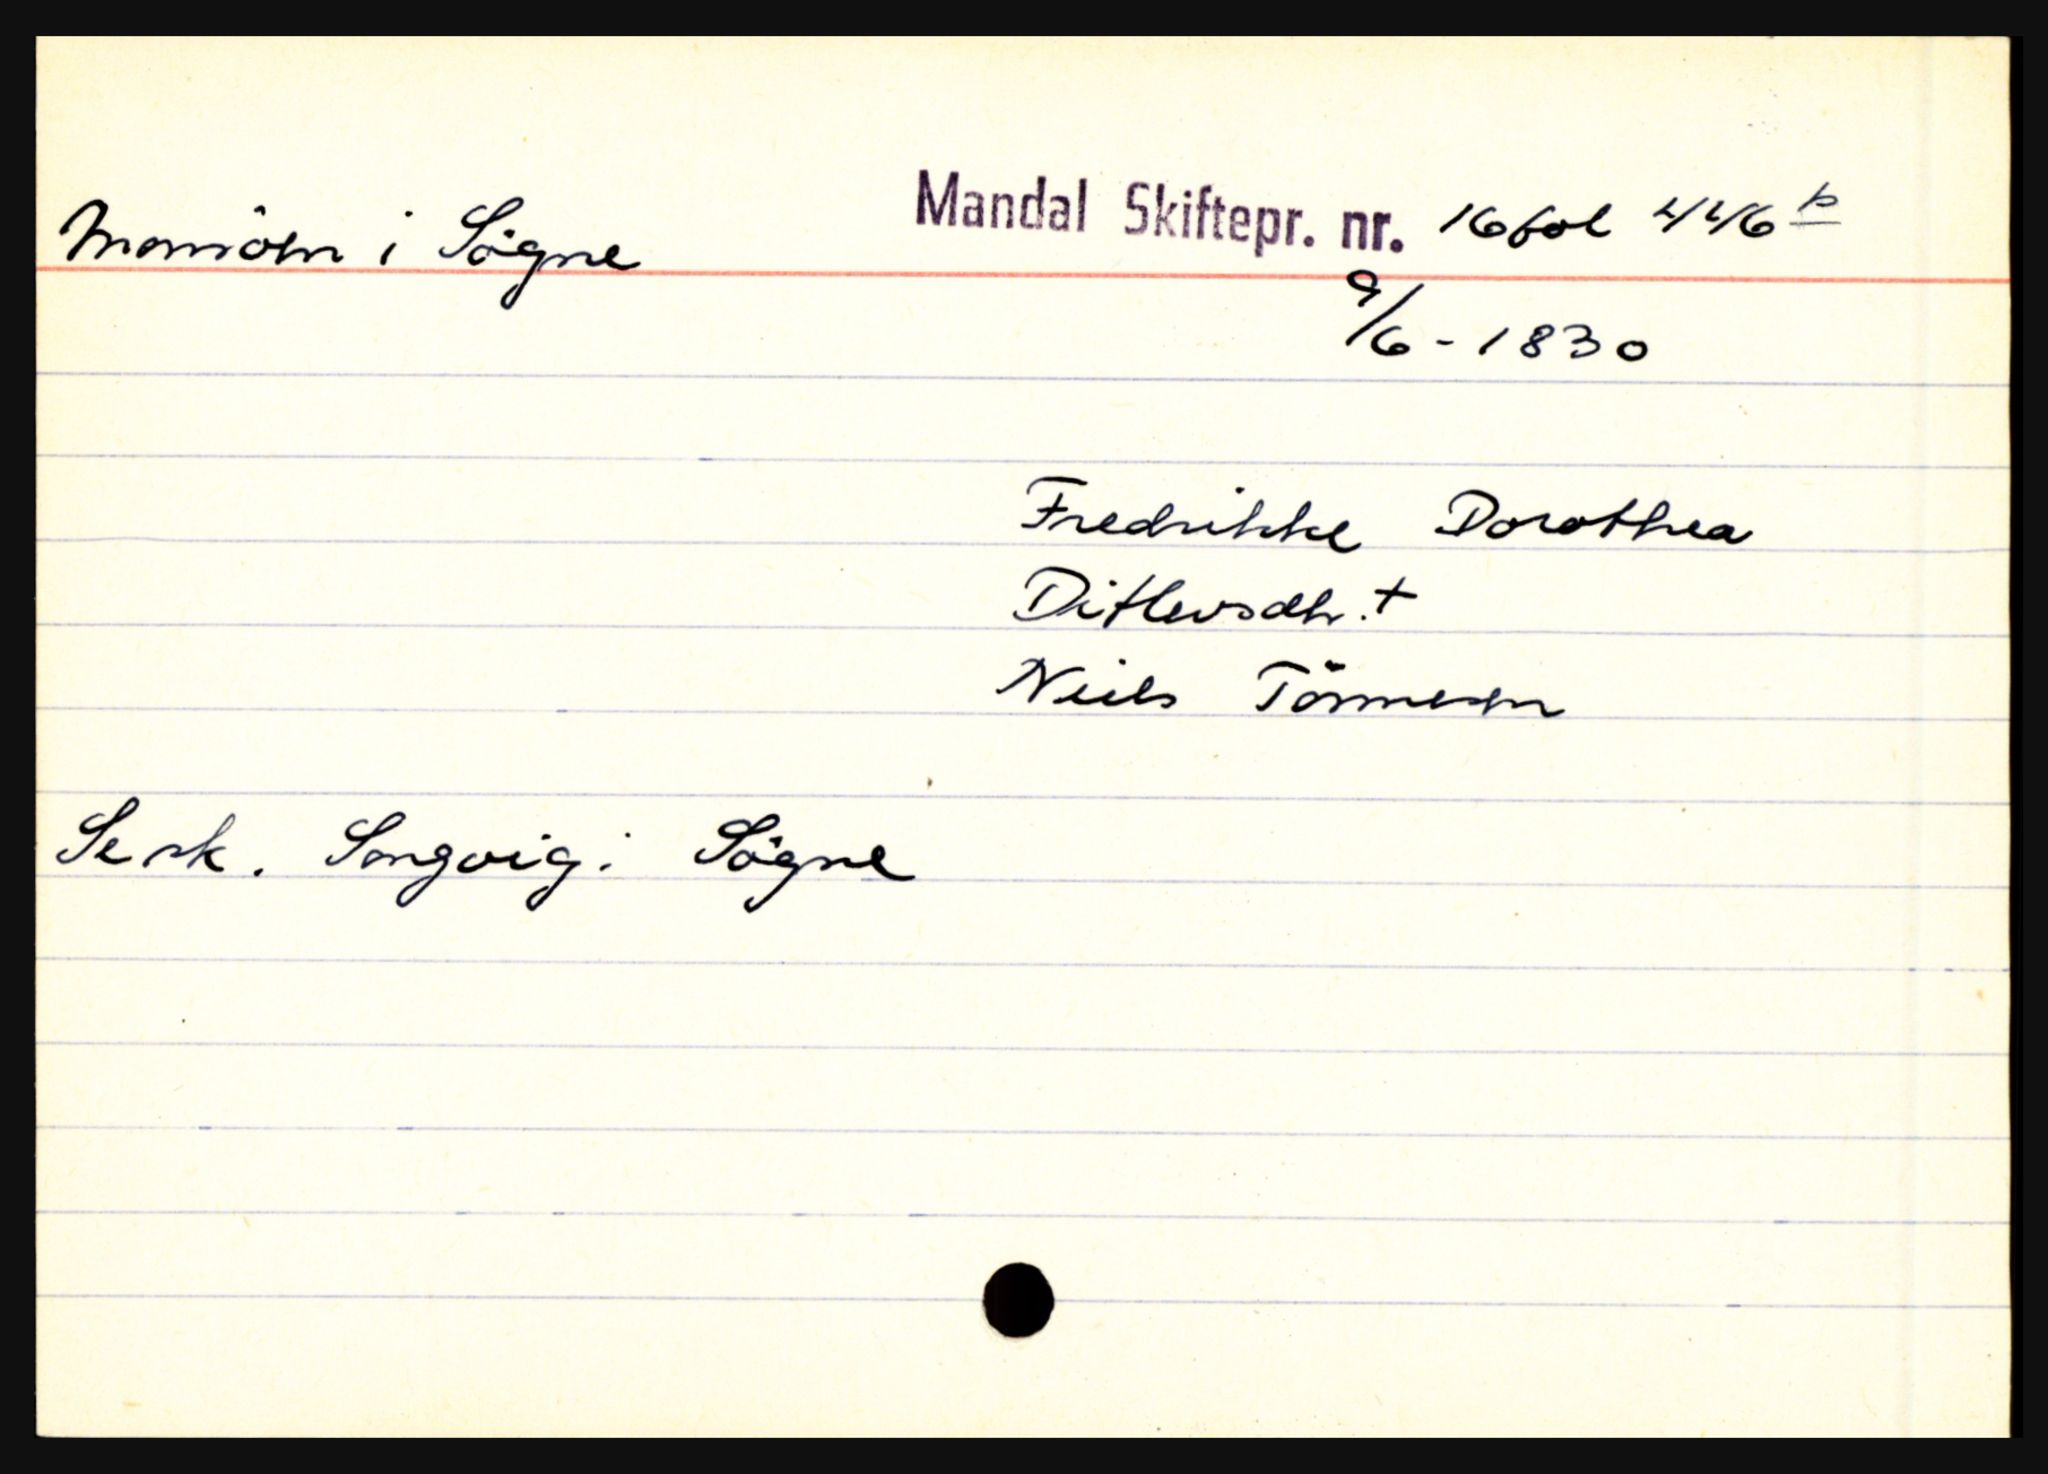 Monsöen i Sögne Mandal Skiftepr. nr. 16 fol 446 b
9/6 - 1830
Fredrikke Dorothea
Ditlevsdtr. +
Niels Tönnesen
Se sk. Songvig i Sögne